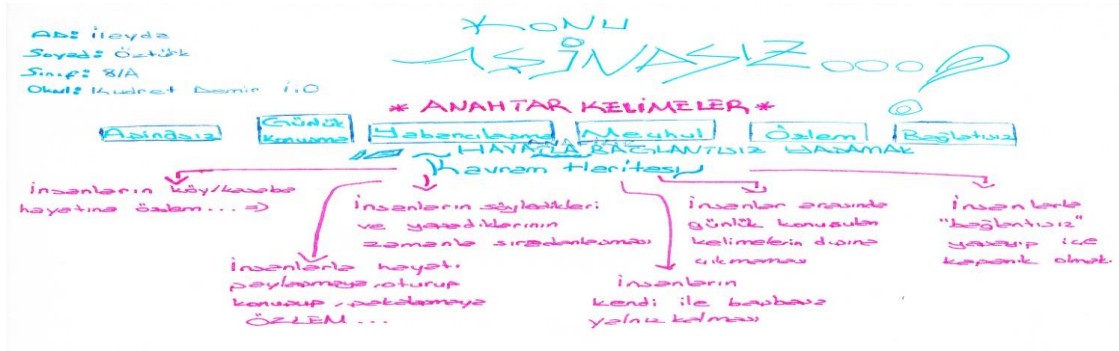 Adı: İleyda
Soyadı: Öztürk
Sınıf: 8/A
Okul: Kudret Demir İ.O
KONU
AŞİNASIZ...?
* ANAHTAR KELİMELER *
Aşinasız
Günlük Konuşma
Yabancılaşma
Meçhul
Özlem
Bağlatısız
HAYATLA BAĞLANTISIZ YAŞAMAK
Kavram Haritası
İnsanların köy/kasaba
hayatına özlem... =>
İnsanlarla hayatı
paylaşmaya, oturup
konuşup, şakalaşmaya
ÖZLEM...
İnsanların söyledikleri
ve yaşadıklarının
zamanla sıradanlaşması
İnsanların
kendi ile başbaşa
yalnız kalması
İnsanlar arasında
günlük konuşulan
kelimelerin dışına
çıkmaması
İnsanlarla
"bağlantısız"
yaşayıp içe
kapanık olmak.